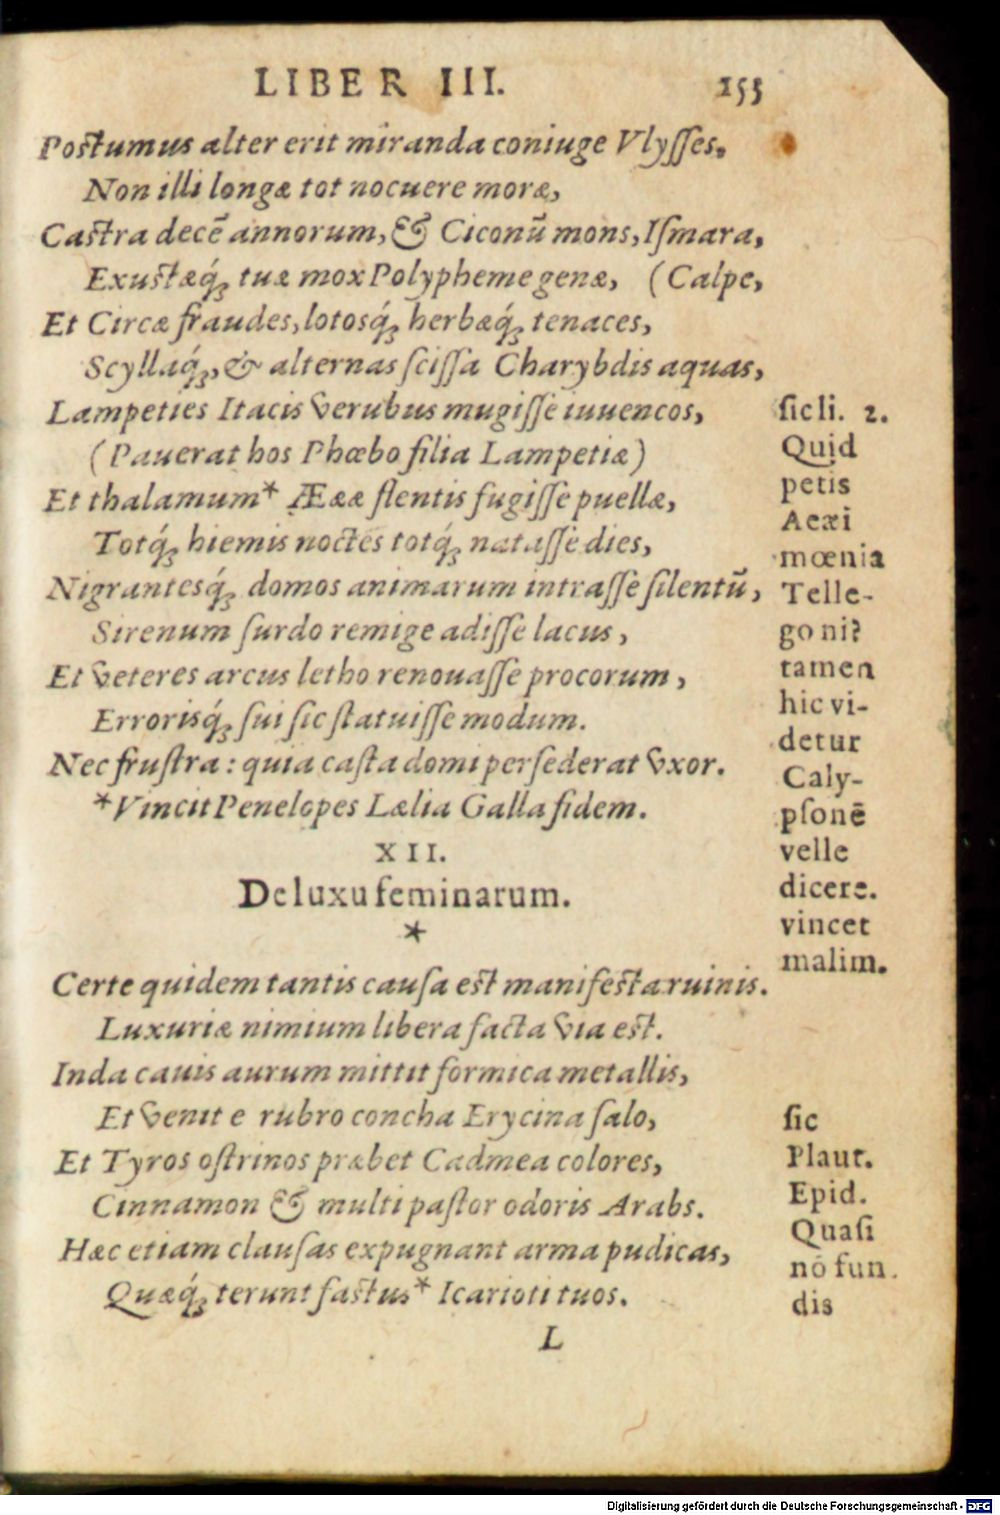 LIBER III. 155
Postumus alter erit miranda coniuge Vlyſſes,
Non illi longæ tot nocuere moræ,
Castra decē annorum, & Ciconū mons, Iſmara,
Exustæq́ꝫ tuæ mox Polypheme genæ, (Calpe,
Et Circæ fraudes, lotosq́ꝫ herbæq́ꝫ tenaces,
Scyllaq́ꝫ, & alternas ſciſſa Charybdis aquas,
Lampeties Itacis verubus mugiſſe iuuencos,
(Pauerat hos Phœbo filia Lampetiæ)
Et thalamum* Ææææ flentis fugiſſe puellæ,
Totq́ꝫ hiemis noctes totq́ꝫ nataſſe dies,
Nigrantesq́ꝫ domos animarum intraſſe ſilentū,
Sirenum ſurdo remige adiſſe lacus,
Et veteres arcus letho renouaſſe procorum,
Errorisq́ꝫ ſui ſic ſtatuiſſe modum.
Nec fruſtra: quia caſta domi perſederat vxor.
*Vincit Penelopes Lælia Galla fidem.
XII.
De luxu feminarum.
*
Certe quidem tantis cauſa est manifesta ruinis.
Luxuriæ nimium libera facta via est.
Inda cauis aurum mittit formica metallis,
Et venit e rubro concha Erycina ſalo,
Et Tyros oſtrinos præbet Cadmea colores,
Cinnamon & multi paſtor odoris Arabs.
Hæc etiam clauſas expugnant arma pudicas,
Quæq́ꝫ terunt fastus* Icarioti tuos.
L
ſic li. 2.
Quid
petis
Aeæi
mœnia
Telle-
goni?
tamen
hic vi-
detur
Caly-
pſonē
velle
dicere.
vincet
malim.
ſic
Plaut.
Epid.
Quaſi
nō fun.
dis
Digitalisierung gefördert durch die Deutsche Forschungsgemeinschaft - DFG